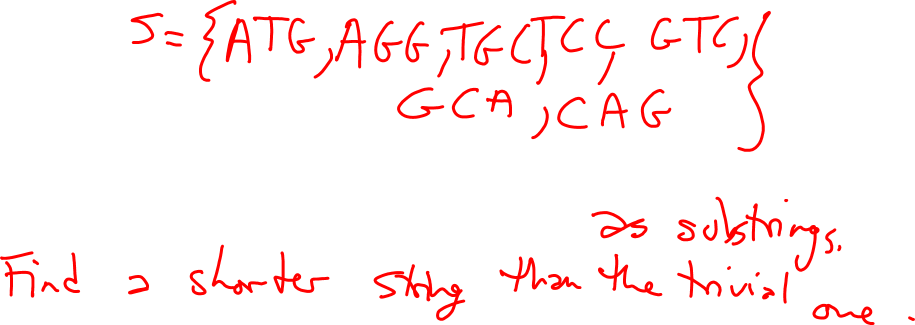 S = {ATG, AGG, TGC, TCC, GTC,
GCA, CAG}
as substrings.
Find a shorter string than the trivial one.